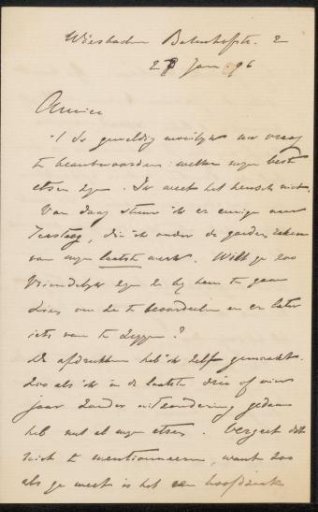 Wiesbaden Bahnhofstr. 2
28 Jan 96
Amice
't Is geweldig moeilijk uw vraag
te beantwoorden welke mijn best
etsen zijn. Ik weet het heusch niet.
Van daag stuur ik er eenige naar
, die ik onder de goeden reken
van mijn laatste werk. Wilt ge zoo
vriendelijk zijn ze bij hem te gaan
zien om ze te beoordeelen en er later
iets van te zeggen?
De afdrukken heb ik zelf gemaakt.
Zoo als ik in de laatste drie of vier
jaar zonder uitzondering gedaan
heb met al mijn etsen. Vergeet dit
niet te mentionneeren, want zoo
als ge weet is het een hoofdzaak